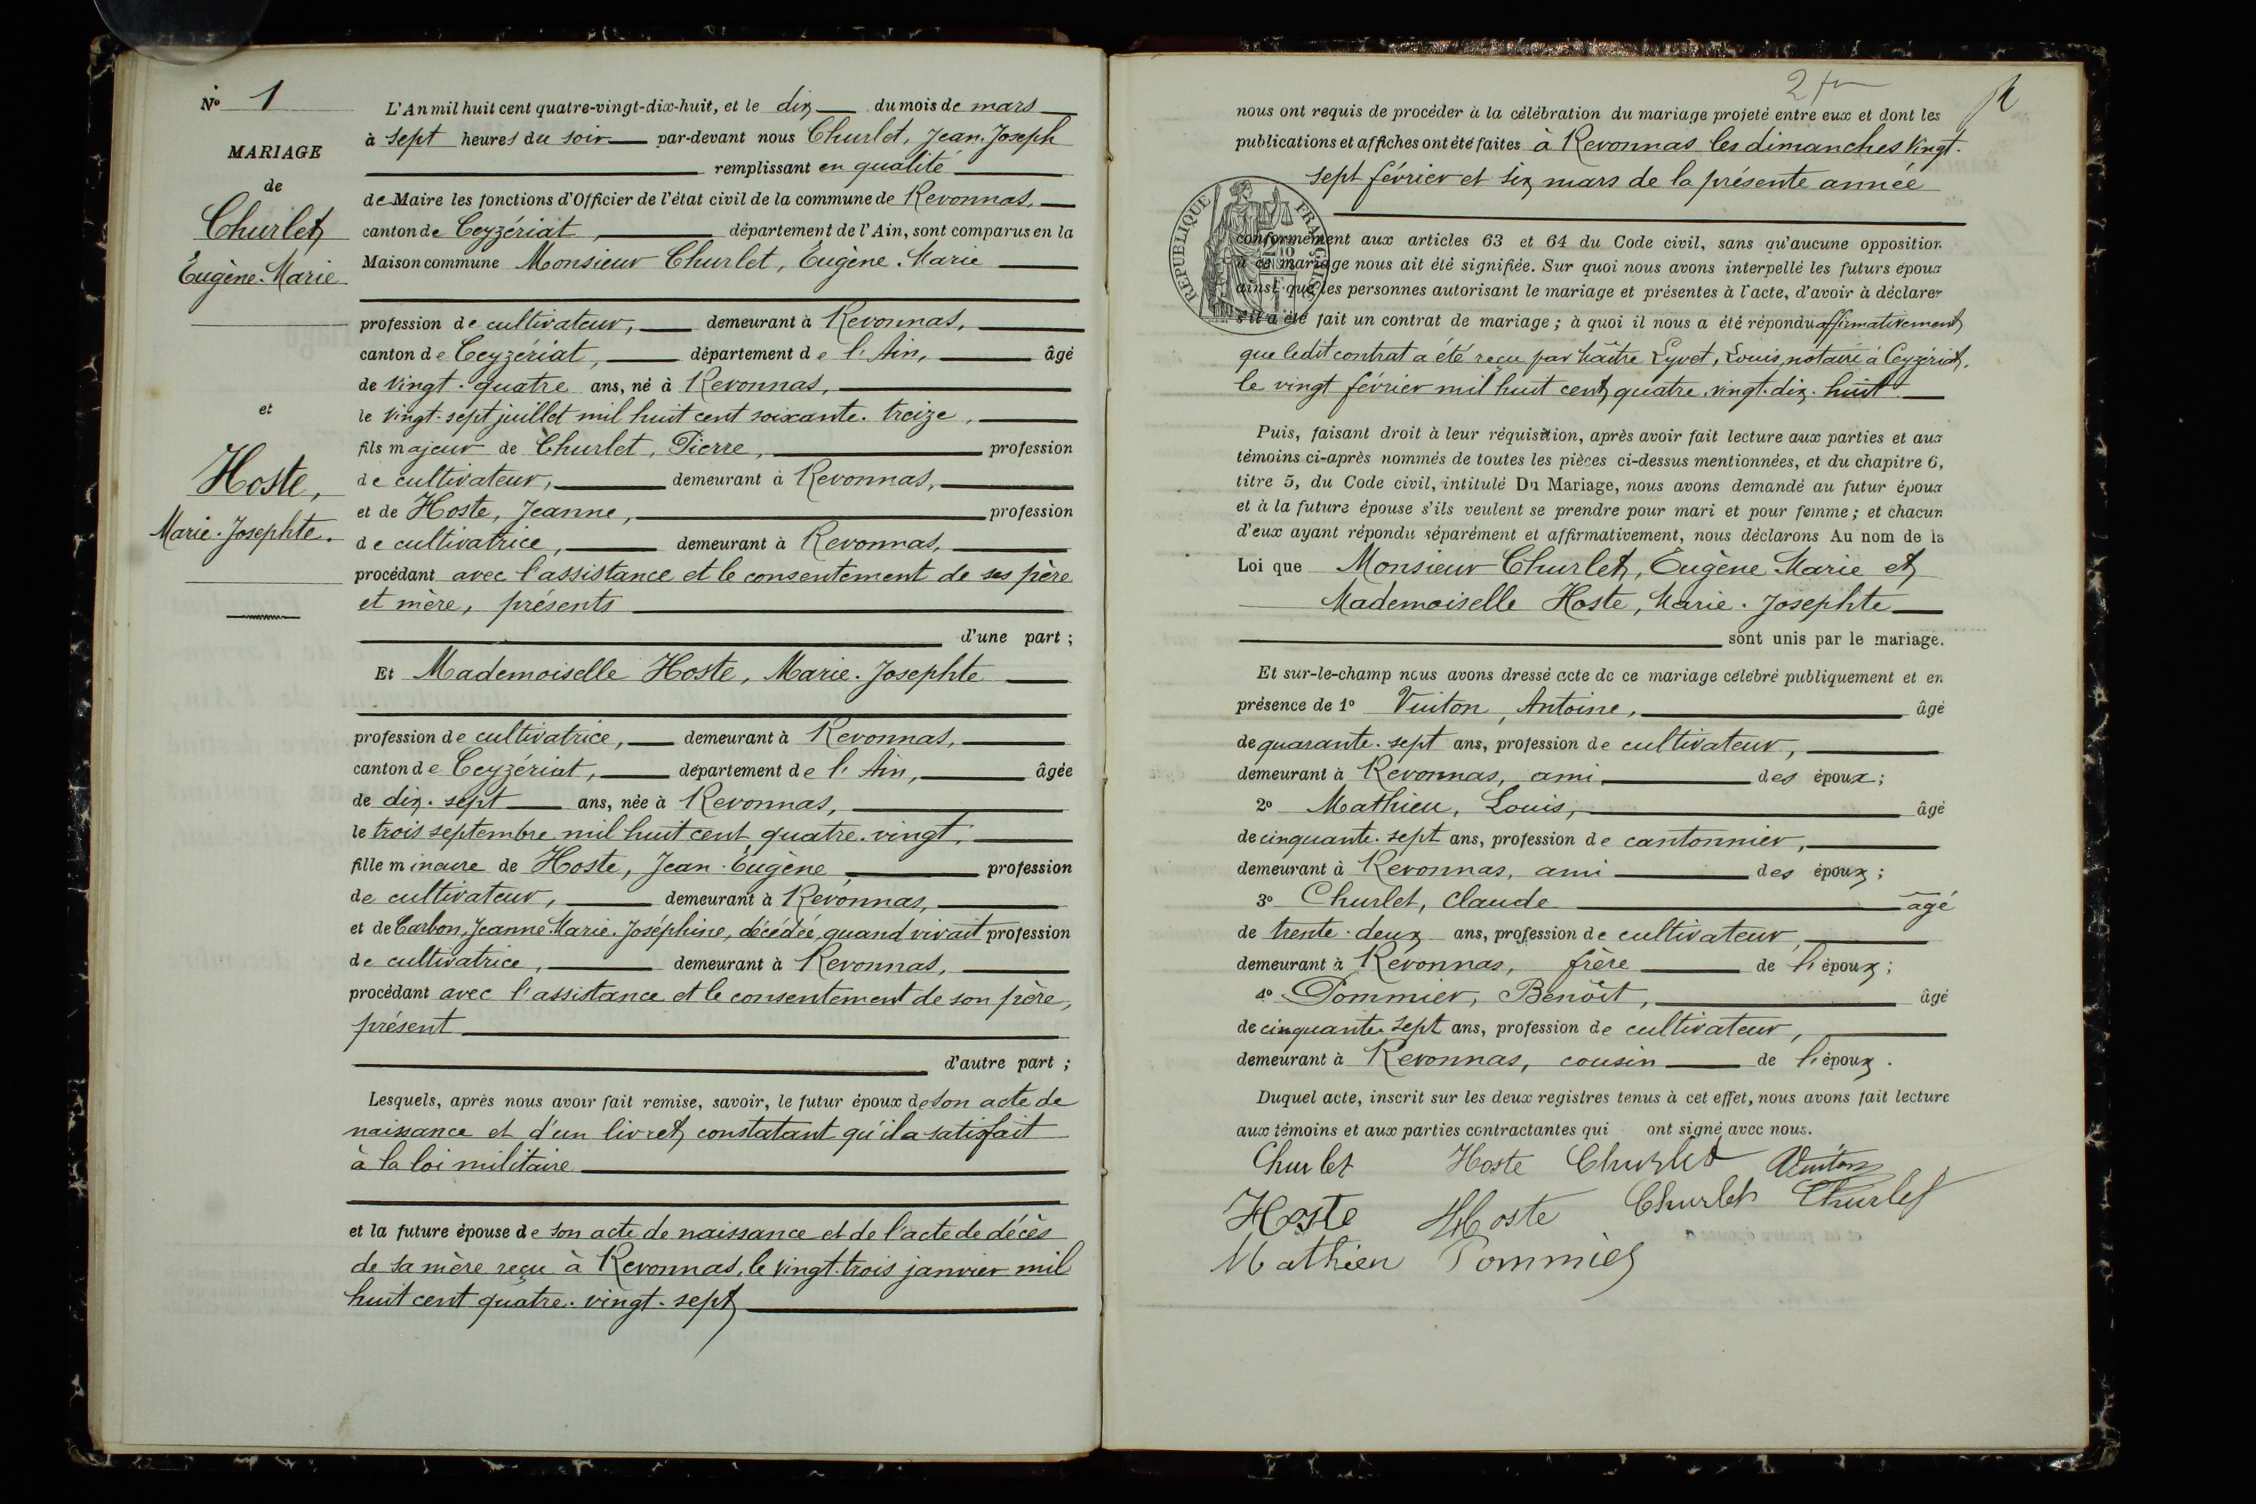 N° 1
MARIAGE
de
Churlet
Eugène-Marie
et
Hoste,
Marie-Josephte.
L'An mil huit cent quatre-vingt-dix-huit, et le dix du mois de mars
à sept heures du soir par-devant nous Churlet, Jean-Joseph
remplissant en qualité
de Maire les fonctions d'Officier de l'état civil de la commune de Revonnas,
canton de Ceyzériat, département de l'Ain, sont comparus en la
Maison commune Monsieur Churlet, Eugène-Marie
profession de cultivateur, demeurant à Revonnas,
canton de Ceyzériat, département de l'Ain, âgé
de vingt-quatre ans, né à Revonnas,
le vingt-sept juillet mil huit cent soixante-treize,
fils majeur de Churlet, Pierre, profession
de cultivateur, demeurant à Revonnas,
et de Hoste, Jeanne, profession
de cultivatrice, demeurant à Revonnas,
procédant avec l'assistance et le consentement de ses père
et mère, présents
d'une part;
Et Mademoiselle Hoste, Marie-Josephte
profession de cultivatrice, demeurant à Revonnas,
canton de Ceyzériat, département de l'Ain, âgée
de dix-sept ans, née à Revonnas,
le trois septembre mil huit cent quatre-vingt,
fille mineure de Hoste, Jean-Eugène, profession
de cultivateur, demeurant à Revonnas,
et de Carbon, Jeanne-Marie-Joséphine, décédée, quand vivait profession
de cultivatrice, demeurant à Revonnas,
procédant avec l'assistance et le consentement de son père,
présent
d'autre part;
Lesquels, après nous avoir fait remise, savoir, le futur époux de son acte de
naissance et d'un livret constatant qu'il a satisfait
à la loi militaire
et la future épouse de son acte de naissance et de l'acte de décès
de sa mère reçu à Revonnas, le vingt-trois janvier mil
huit cent quatre-vingt-sept
nous ont requis de procéder à la célébration du mariage projeté entre eux et dont les
publications et affiches ont été faites à Revonnas les dimanches vingt-
sept février et six mars de la présente année
RÉPUBLIQUE FRANÇAISE
conformément aux articles 63 et 64 du Code civil, sans qu'aucune opposition
à ce mariage nous ait été signifiée. Sur quoi nous avons interpellé les futurs époux
ainsi que les personnes autorisant le mariage et présentes à l'acte, d'avoir à déclarer
s'il a été fait un contrat de mariage; à quoi il nous a été répondu affirmativement
que ledit contrat a été reçu par Maître Lyvet, Louis, notaire à Ceyzériat,
le vingt février mil huit cent quatre-vingt-dix-huit.
Puis, faisant droit à leur réquisition, après avoir fait lecture aux parties et aux
témoins ci-après nommés de toutes les pièces ci-dessus mentionnées, et du chapitre 6,
titre 5, du Code civil, intitulé Du Mariage, nous avons demandé au futur époux
et à la future épouse s'ils veulent se prendre pour mari et pour femme; et chacun
d'eux ayant répondu séparément et affirmativement, nous déclarons Au nom de la
Loi que Monsieur Churlet, Eugène-Marie et
Mademoiselle Hoste, Marie-Josephte
sont unis par le mariage.
Et sur-le-champ nous avons dressé acte de ce mariage célébré publiquement et en
présence de 1° Vuiton, Antoine, âgé
de quarante-sept ans, profession de cultivateur,
demeurant à Revonnas, ami des époux;
2° Mathieu, Louis, âgé
de cinquante-sept ans, profession de cantonnier,
demeurant à Revonnas, ami des époux;
3° Churlet, Claude âgé
de trente-deux ans, profession de cultivateur,
demeurant à Revonnas, frère de l'époux;
4° Pommier, Benoît, âgé
de cinquante-sept ans, profession de cultivateur,
demeurant à Revonnas, cousin de l'époux.
Duquel acte, inscrit sur les deux registres tenus à cet effet, nous avons fait lecture
aux témoins et aux parties contractantes qui ont signé avec nous.
Churlet Hoste Churlet Vuiton
Hoste Hoste Churlet Churlet
Mathieu Pommier